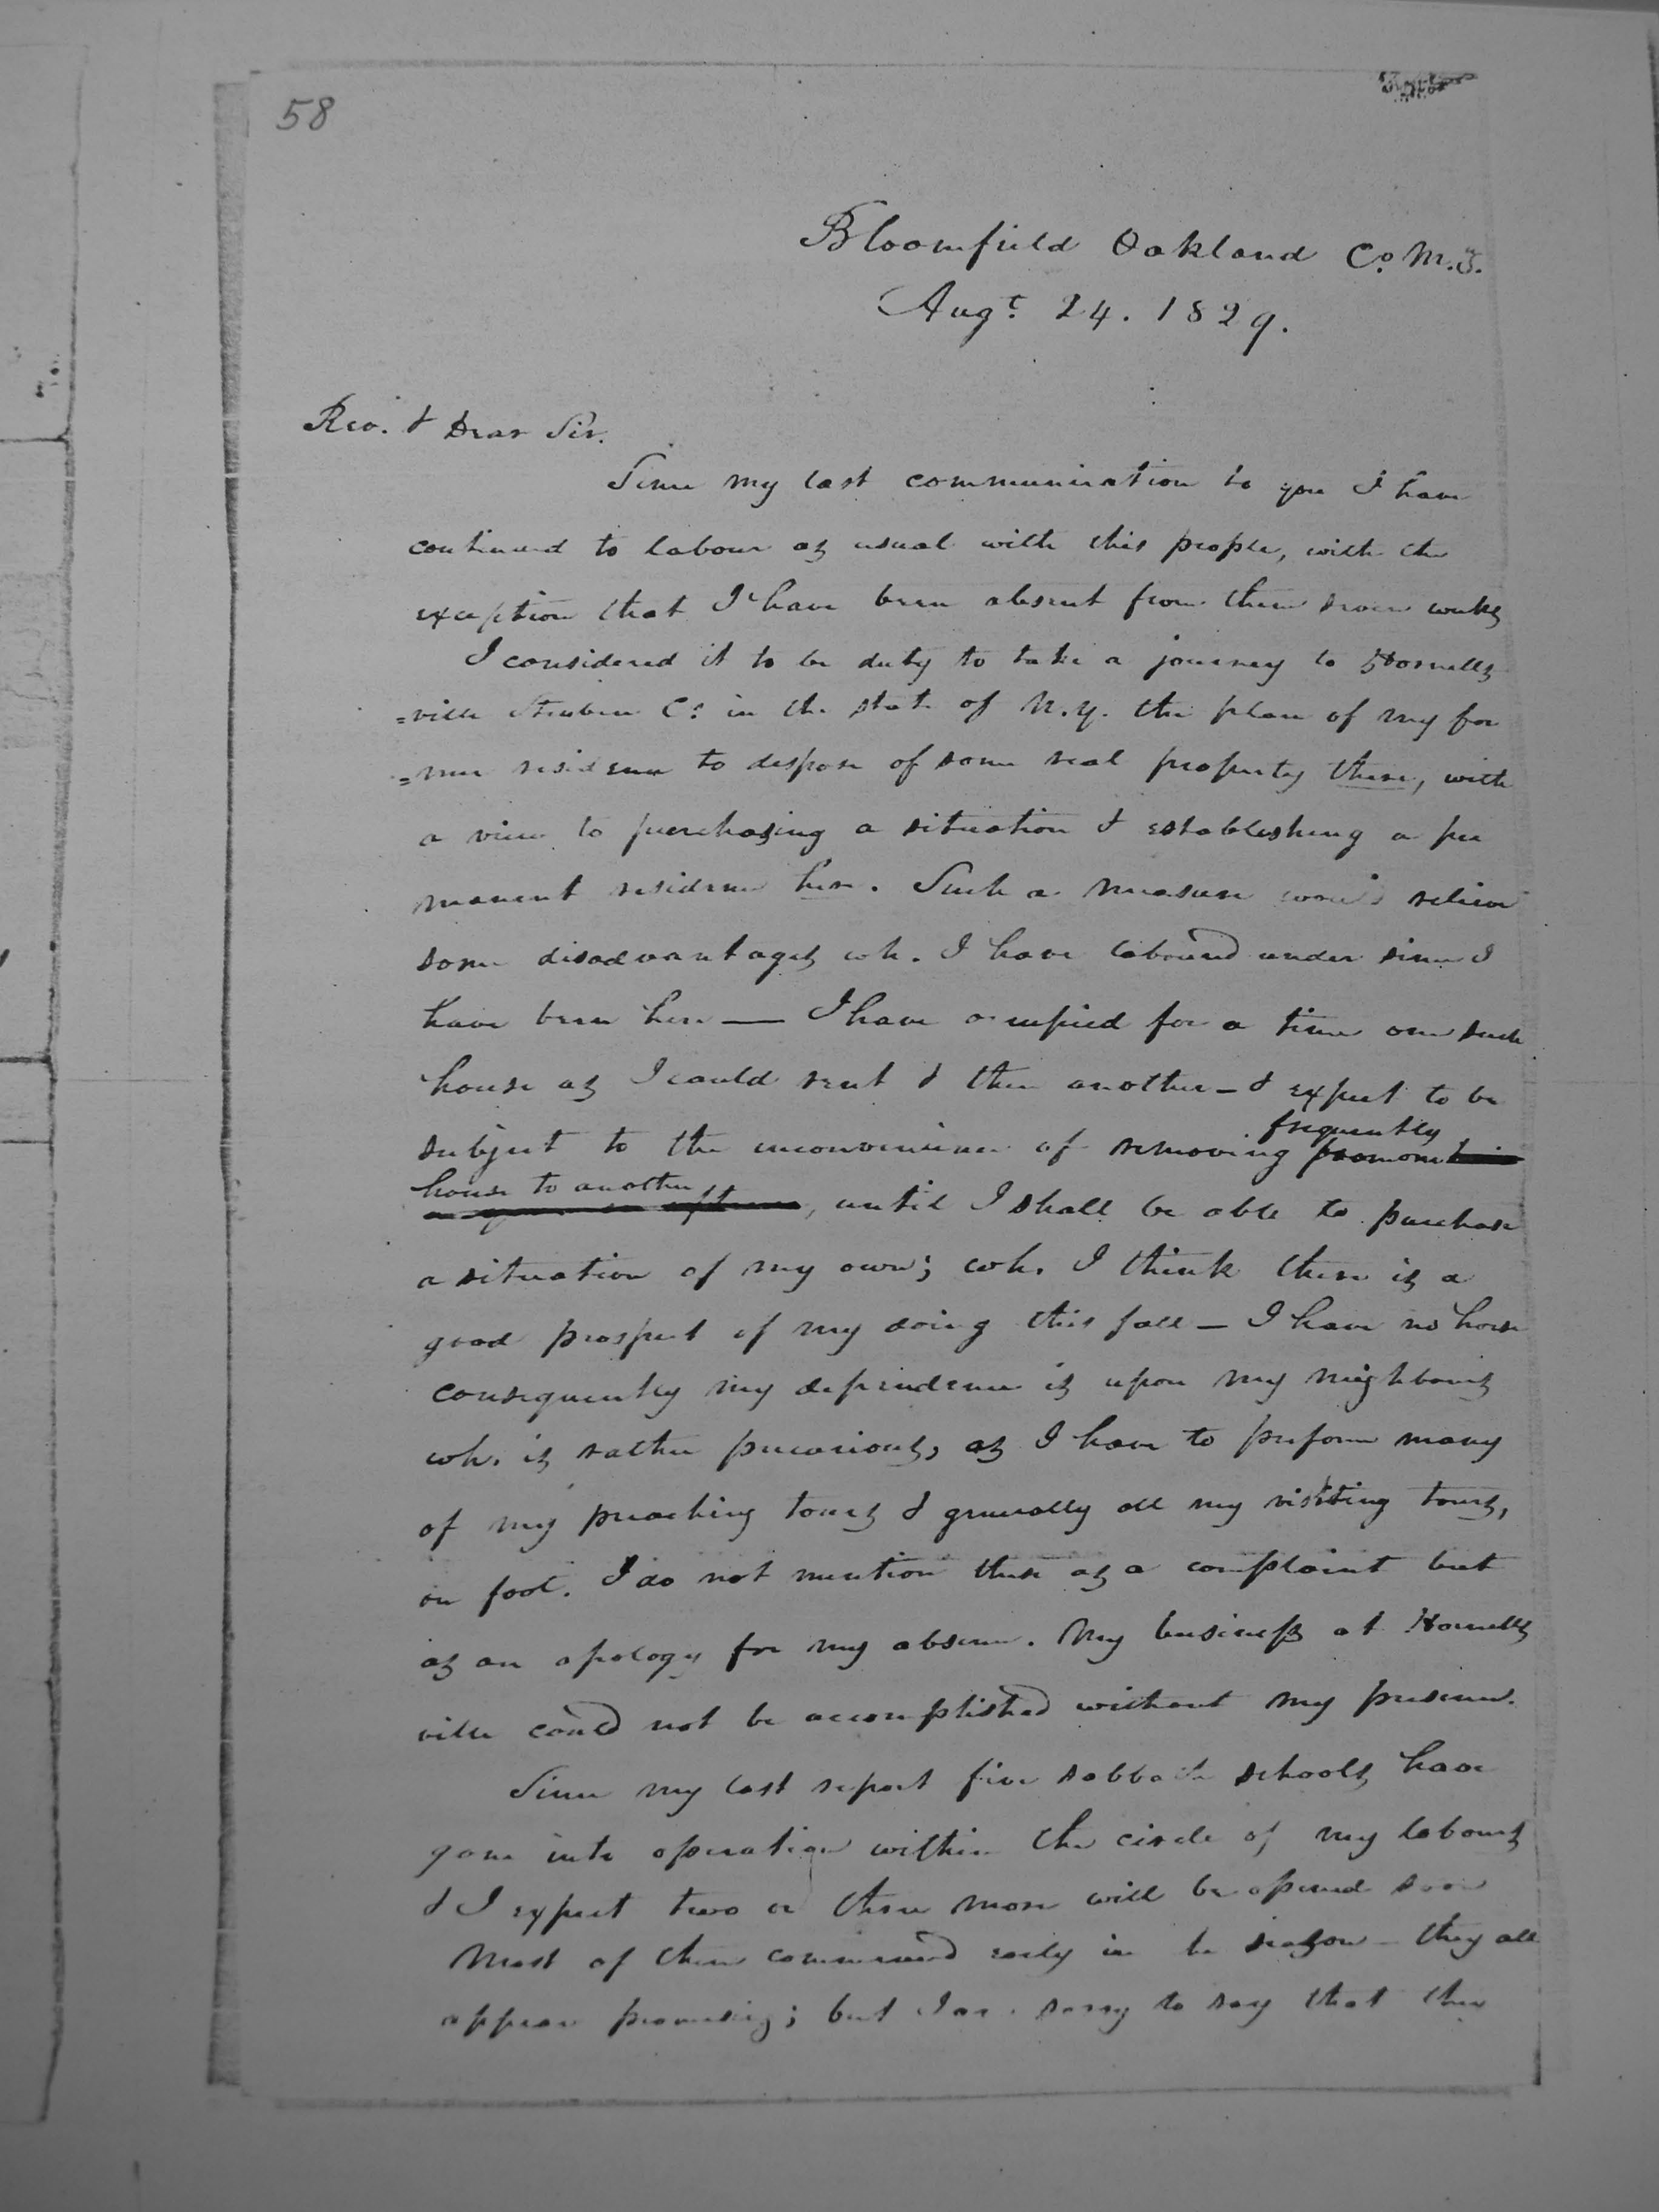 58
Bloomfield Oakland Co. M.T.
Augt. 24. 1829.
Rev. & Dear Sir.
Since my last communication to you I have
continued to labour as usual with this people, with the
exception that I have been absent from them seven weeks
I considered it to be duty to take a journey to Hornells
=ville Steuben Co. in the state of N.Y. the place of my for
=mer residence to dispose of some real property there, with
a view to purchasing a situation & establishing a per
manent residence here. Such a measure would relieve
some disadvantages wh. I have laboured under since I
have been here — I have occupied for a time one such
house as I could rent & then another – & expect to be
subject to the inconvenience of removing frequently from one
house to another, until I shall be able to purchase
a situation of my own; wh. I think there is a
good prospect of my doing this fall – I have no horse
consequently my dependence is upon my neighbours
wh. is rather precarious, as I have to perform many
of my preaching tours & generally all my visiting tours,
on foot. I do not mention these as a complaint but
as an apology for my absence. My business at Hornells
ville could not be accomplished without my presence.
Since my last report five sabbath schools have
gone into operation within the circle of my labours
& I expect two or three more will be opened soon
Most of them commenced early in the season – they all
appear promising; but I am sorry to say that the